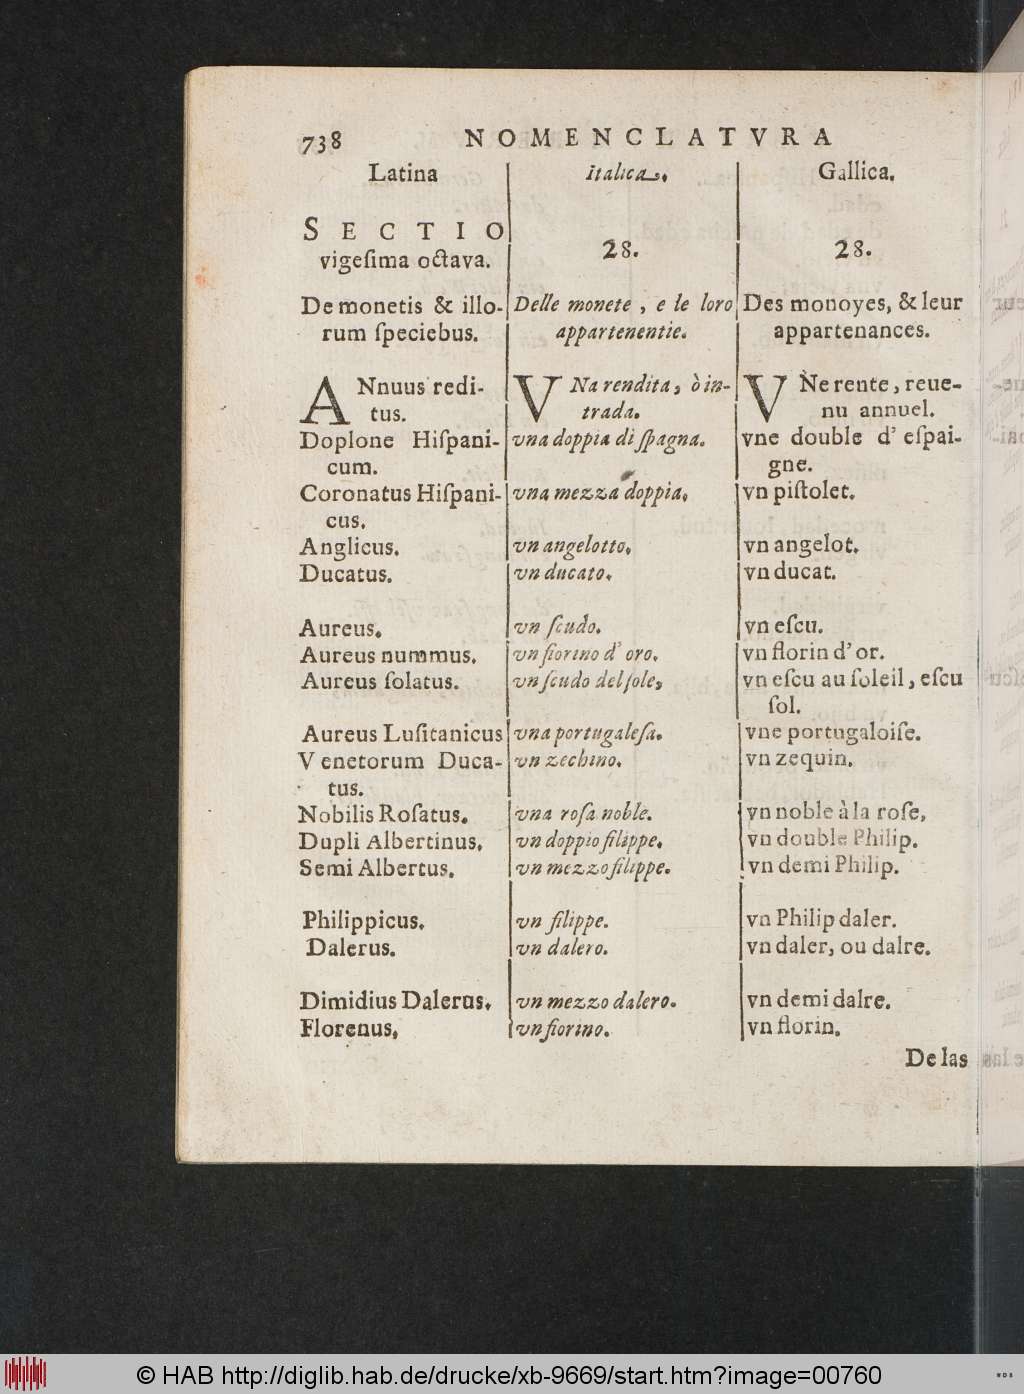 738 NOMENCLATVRA
Latina
SECTIO
vigeſima octava.
De monetis & illo-
rum ſpeciebus.
ANnuus redi-
tus.
Doplone Hiſpani-
cum.
Coronatus Hiſpani-
cus.
Anglicus.
Ducatus.
Aureus.
Aureus nummus.
Aureus ſolatus.
Aureus Luſitanicus
Venetorum Duca-
tus.
Nobilis Roſatus.
Dupli Albertinus.
Semi Albertus.
Philippicus.
Dalerus.
Dimidius Dalerus.
Florenus.
Italica.
28.
Delle monete, e le loro
appartenentie.
VNa rendita, ò in-
trada.
vna doppia di ſpagna.
vna mezza doppia.
vn angelotto.
vn ducato.
vn ſcudo.
vn fiorino d' oro.
vn ſcudo del ſole,
vna portugaleſa.
vn zechino.
vna roſa noble.
vn doppio filippe.
vn mezzo filippe.
vn filippe.
vn dalero.
vn mezzo dalero.
vn fiorino.
Gallica.
28.
Des monoyes, & leur
appartenances.
VNe rente, reue-
nu annuel.
vne double d' eſpai-
gne.
vn piſtolet.
vn angelot.
vn ducat.
vn eſcu.
vn florin d' or.
vn eſcu au ſoleil, eſcu
ſol.
vne portugaloiſe.
vn zequin.
vn noble à la roſe,
vn double Philip.
vn demi Philip.
vn Philip daler.
vn daler, ou dalre.
vn demi dalre.
vn florin.
De las
© HAB http://diglib.hab.de/drucke/xb-9669/start.htm?image=00760